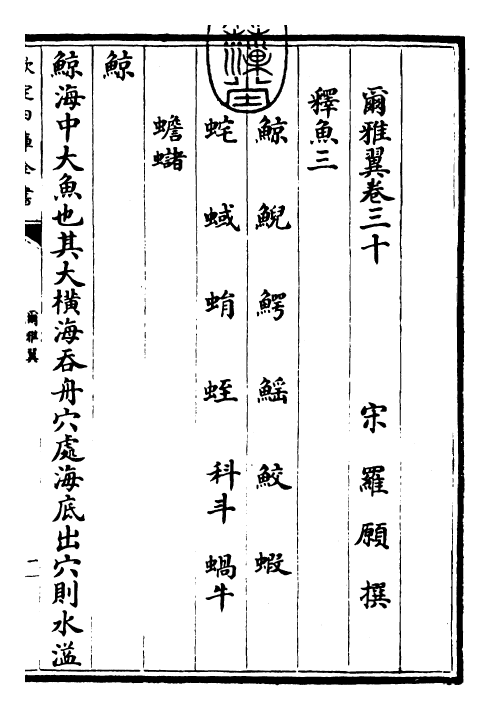 爾雅翼卷三十
宋 羅 願 撰
釋魚三
鯨 鯢 鰐 鰩 鮫 蝦
蛇 蜮 蜎 蛭 科斗 蝸牛
蟾蠩
鯨
鯨海中大魚也其大橫海吞舟穴處海底出穴則水溢
欽定四庫全書
爾雅翼